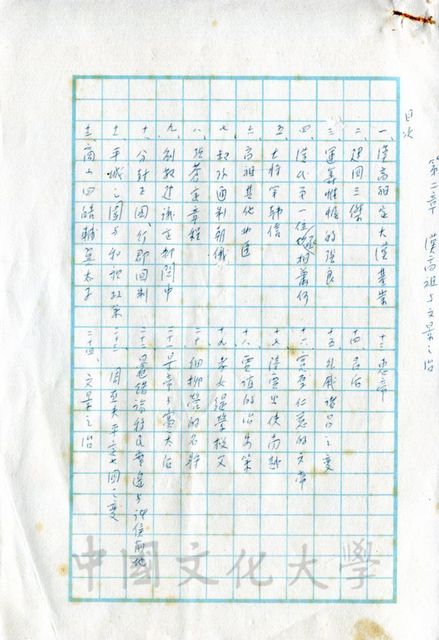 第二章 漢高祖与文景之治
目次
一、漢高祖定大漢基業
二、建國三傑
三、運籌帷幄的張良
四、漢代第一位丞相蕭何
五、大將軍韓信
六、高祖其他功臣
七、叔孫通制朝儀
八、張蒼定章程
九、劉敬建議定都關中
十、分封王國、行郡國制
十一、平城之圍与和親政策
十二、商山四皓輔翼太子
十三、惠帝
十四、呂后
十五、扎滅諸呂之變
十六、寬厚仁慈的文帝
十七、陸賈出使南越
十八、賈誼的治安策
十九、孝女緹縈救父
二十、細柳營的名將
二十一、景帝与竇太后
二十二、晁錯論移民實邊与
二十三、周亞夫平定七國之變
二十四、文景之治
中國文化大學